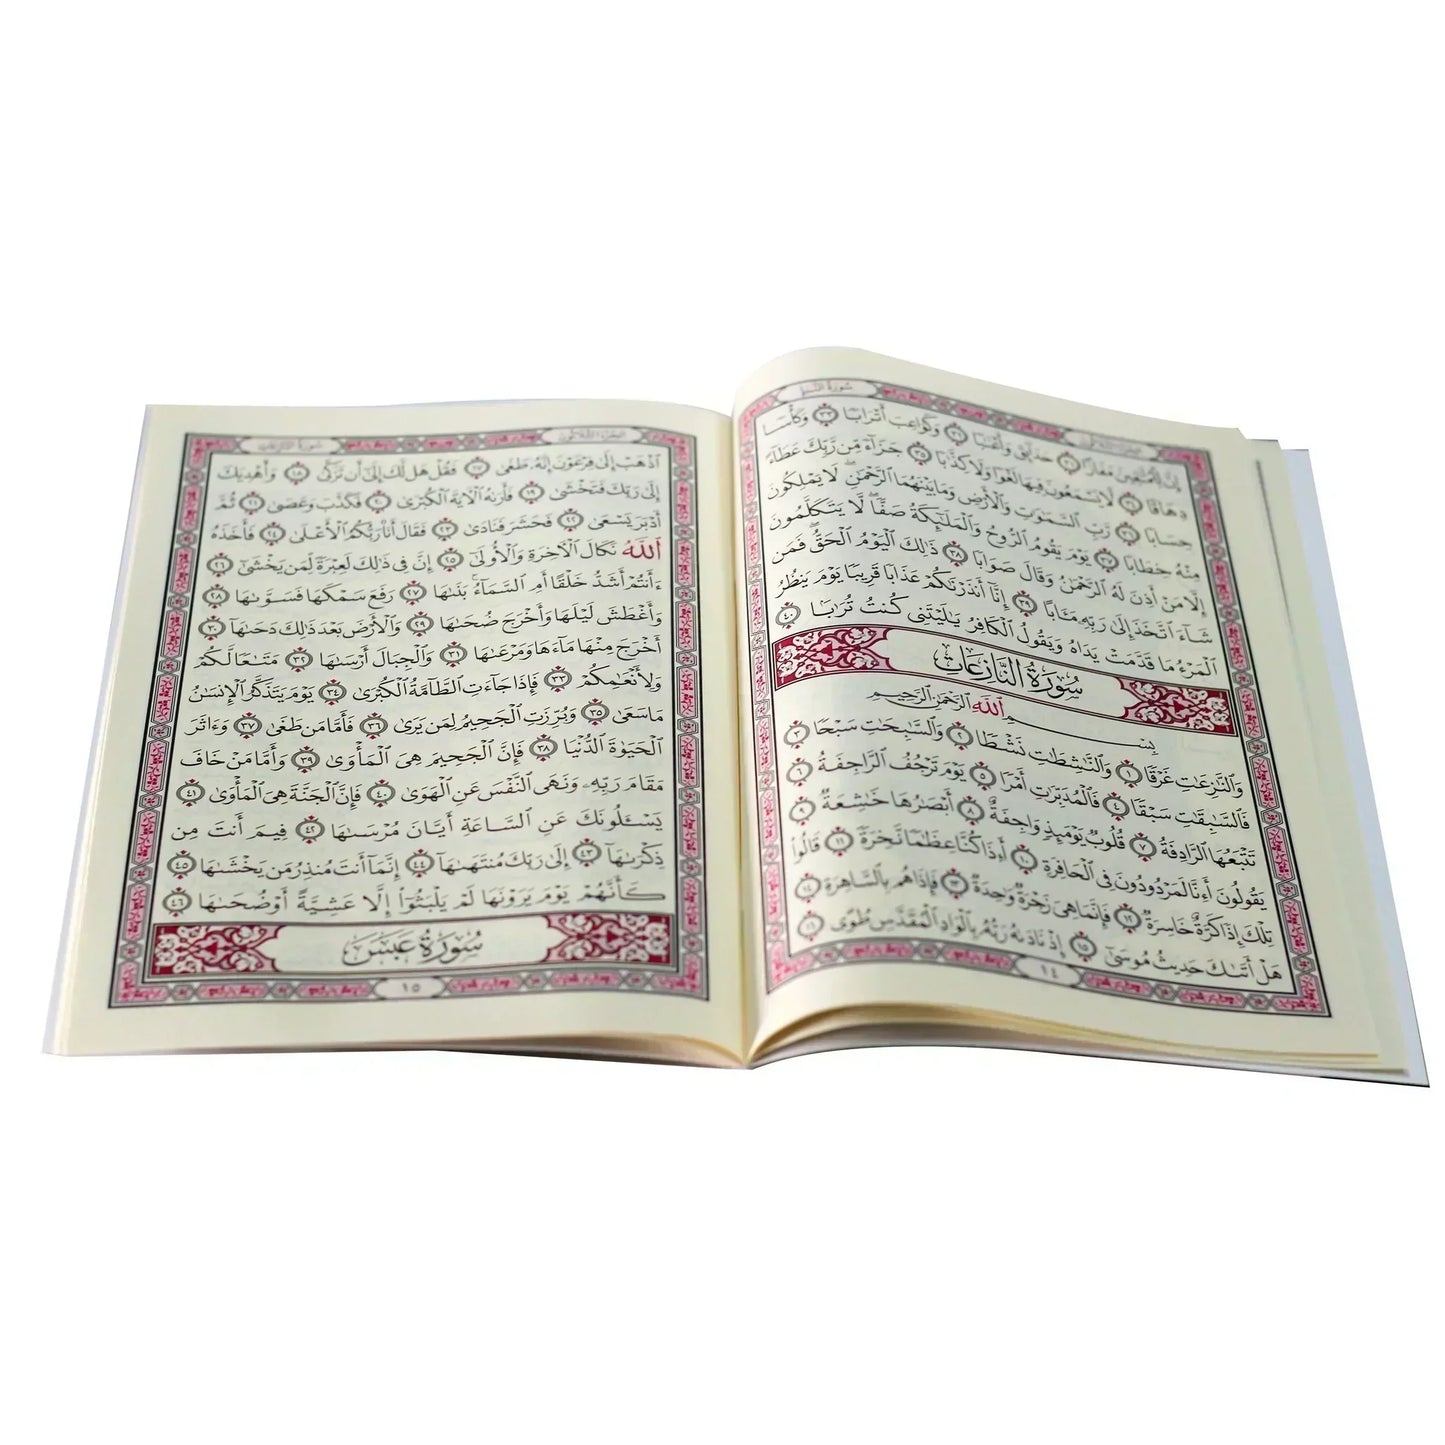 سُورَةُ النَّبَإِ
الجُزْءُ الثَّلَاثُونَ
إِنَّ لِلْمُتَّقِينَ مَفَازًا ٣١ حَدَآئِقَ وَأَعْنَٰبًا ٣٢ وَكَوَاعِبَ أَتْرَابًا ٣٣ وَكَأْسًا
دِهَاقًا ٣٤ لَّا يَسْمَعُونَ فِيهَا لَغْوًا وَلَا كِذَّٰبًا ٣٥ جَزَآءً مِّن رَّبِّكَ عَطَآءً
حِسَابًا ٣٦ رَّبِّ ٱلسَّمَٰوَٰتِ وَٱلْأَرْضِ وَمَا بَيْنَهُمَا ٱلرَّحْمَٰنِ ۖ لَا يَمْلِكُونَ
مِنْهُ خِطَابًا ٣٧ يَوْمَ يَقُومُ ٱلرُّوحُ وَٱلْمَلَٰٓئِكَةُ صَفًّا ۖ لَّا يَتَكَلَّمُونَ
إِلَّا مَنْ أَذِنَ لَهُ ٱلرَّحْمَٰنُ وَقَالَ صَوَابًا ٣٨ ذَٰلِكَ ٱلْيَوْمُ ٱلْحَقُّ ۖ فَمَن
شَآءَ ٱتَّخَذَ إِلَىٰ رَبِّهِۦ مَـَٔابًا ٣٩ إِنَّآ أَنذَرْنَٰكُمْ عَذَابًا قَرِيبًا يَوْمَ يَنظُرُ
ٱلْمَرْءُ مَا قَدَّمَتْ يَدَاهُ وَيَقُولُ ٱلْكَافِرُ يَٰلَيْتَنِى كُنتُ تُرَٰبًۢا ٤٠
سُورَةُ النَّازِعَاتِ
بِسْمِ ٱللَّهِ ٱلرَّحْمَٰنِ ٱلرَّحِيمِ
وَٱلنَّٰزِعَٰتِ غَرْقًا ١ وَٱلنَّٰشِطَٰتِ نَشْطًا ٢ وَٱلسَّٰبِحَٰتِ سَبْحًا ٣
فَٱلسَّٰبِقَٰتِ سَبْقًا ٤ فَٱلْمُدَبِّرَٰتِ أَمْرًا ٥ يَوْمَ تَرْجُفُ ٱلرَّاجِفَةُ ٦
تَتْبَعُهَا ٱلرَّادِفَةُ ٧ قُلُوبٌ يَوْمَئِذٍ وَاجِفَةٌ ٨ أَبْصَٰرُهَا خَٰشِعَةٌ ٩
يَقُولُونَ أَءِنَّا لَمَرْدُودُونَ فِى ٱلْحَافِرَةِ ١٠ أَءِذَا كُنَّا عِظَٰمًا نَّخِرَةً ١١ قَالُوا۟
تِلْكَ إِذًا كَرَّةٌ خَاسِرَةٌ ١٢ فَإِنَّمَا هِىَ زَجْرَةٌ وَٰحِدَةٌ ١٣ فَإِذَا هُم بِٱلسَّاهِرَةِ ١٤
هَلْ أَتَىٰكَ حَدِيثُ مُوسَىٰٓ ١٥ إِذْ نَادَىٰهُ رَبُّهُۥ بِٱلْوَادِ ٱلْمُقَدَّسِ طُوًى ١٦
١٤
سُورَةُ النَّازِعَاتِ
الجُزْءُ الثَّلَاثُونَ
ٱذْهَبْ إِلَىٰ فِرْعَوْنَ إِنَّهُۥ طَغَىٰ ١٧ فَقُلْ هَل لَّكَ إِلَىٰٓ أَن تَزَكَّىٰ ١٨ وَأَهْدِيَكَ
إِلَىٰ رَبِّكَ فَتَخْشَىٰ ١٩ فَأَرَىٰهُ ٱلْءَايَةَ ٱلْكُبْرَىٰ ٢٠ فَكَذَّبَ وَعَصَىٰ ٢١ ثُمَّ
أَدْبَرَ يَسْعَىٰ ٢٢ فَحَشَرَ فَنَادَىٰ ٢٣ فَقَالَ أَنَا۠ رَبُّكُمُ ٱلْأَعْلَىٰ ٢٤ فَأَخَذَهُ
ٱللَّهُ نَكَالَ ٱلْءَاخِرَةِ وَٱلْأُولَىٰٓ ٢٥ إِنَّ فِى ذَٰلِكَ لَعِبْرَةً لِّمَن يَخْشَىٰٓ ٢٦
ءَأَنتُمْ أَشَدُّ خَلْقًا أَمِ ٱلسَّمَآءُ ۚ بَنَىٰهَا ٢٧ رَفَعَ سَمْكَهَا فَسَوَّىٰهَا ٢٨
وَأَغْطَشَ لَيْلَهَا وَأَخْرَجَ ضُحَىٰهَا ٢٩ وَٱلْأَرْضَ بَعْدَ ذَٰلِكَ دَحَىٰهَآ ٣٠
أَخْرَجَ مِنْهَا مَآءَهَا وَمَرْعَىٰهَا ٣١ وَٱلْجِبَالَ أَرْسَىٰهَا ٣٢ مَتَٰعًا لَّكُمْ
وَلِأَنْعَٰمِكُمْ ٣٣ فَإِذَا جَآءَتِ ٱلطَّآمَّةُ ٱلْكُبْرَىٰ ٣٤ يَوْمَ يَتَذَكَّرُ ٱلْإِنسَٰنُ
مَا سَعَىٰ ٣٥ وَبُرِّزَتِ ٱلْجَحِيمُ لِمَن يَرَىٰ ٣٦ فَأَمَّا مَن طَغَىٰ ٣٧ وَءَاثَرَ
ٱلْحَيَوٰةَ ٱلدُّنْيَا ٣٨ فَإِنَّ ٱلْجَحِيمَ هِىَ ٱلْمَأْوَىٰ ٣٩ وَأَمَّا مَنْ خَافَ
مَقَامَ رَبِّهِۦ وَنَهَى ٱلنَّفْسَ عَنِ ٱلْهَوَىٰ ٤٠ فَإِنَّ ٱلْجَنَّةَ هِىَ ٱلْمَأْوَىٰ ٤١
يَسْـَٔلُونَكَ عَنِ ٱلسَّاعَةِ أَيَّانَ مُرْسَىٰهَا ٤٢ فِيمَ أَنتَ مِن
ذِكْرَىٰهَآ ٤٣ إِلَىٰ رَبِّكَ مُنتَهَىٰهَآ ٤٤ إِنَّمَآ أَنتَ مُنذِرُ مَن يَخْشَىٰهَا ٤٥
كَأَنَّهُمْ يَوْمَ يَرَوْنَهَا لَمْ يَلْبَثُوٓا۟ إِلَّا عَشِيَّةً أَوْ ضُحَىٰهَا ٤٦
سُورَةُ عَبَسَ
١٥